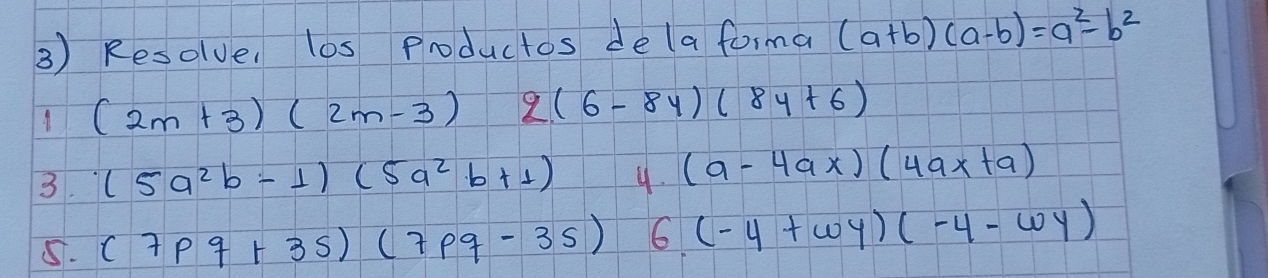 3) Resolver los productos de la forma (a+b)(a-b)=a²-b²
1 (2m+3)(2m-3) 2.(6-8y)(8y+6)
3. (5a²b-1)(5a²b+1) 4. (a-4ax)(4ax+a)
5. (7pq+3s)(7pq-3s) 6. (-4+wy)(-4-wy)